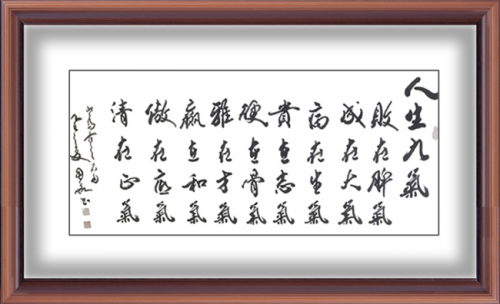 人生九氣
敗在脾氣
成在大氣
高在氣
貴在志氣
硬在骨氣
雅在才氣
贏在和氣
傲在底氣
清在正氣